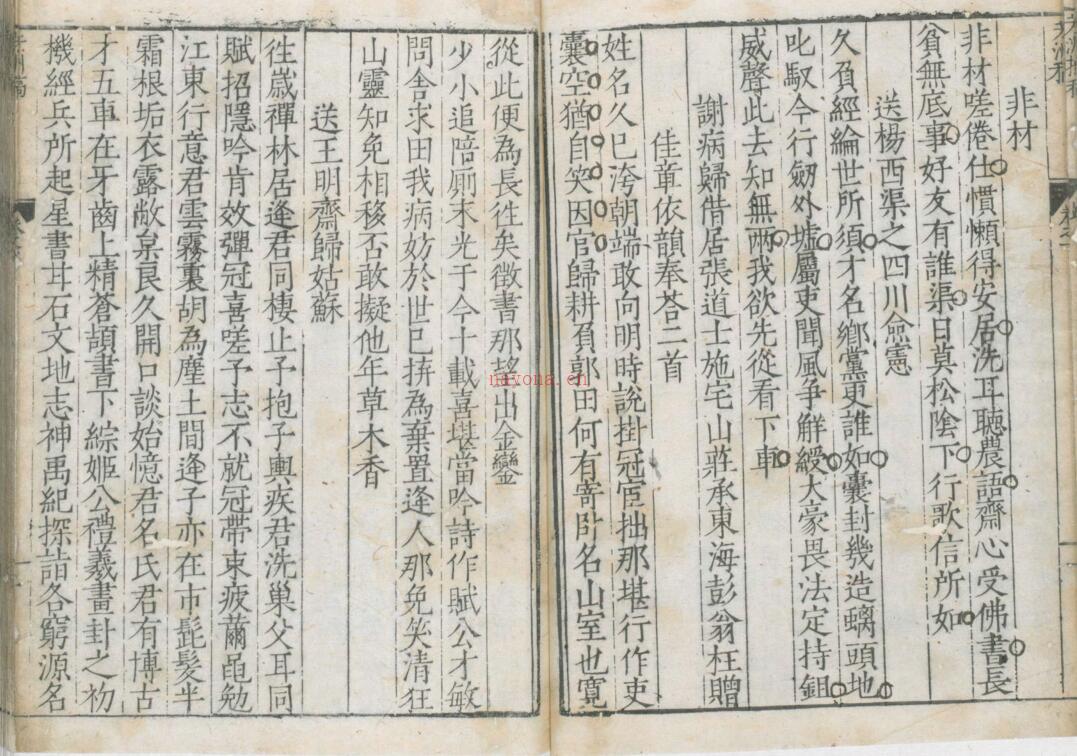 非材
非材嗟倦仕慣懶得安居洗耳聽農語齋心受佛書長
貧無底事好友有誰渠日莫松陰下行歌信所如
送楊西渠之四川僉憲
久負經綸世所須才名鄉黨更誰如囊封幾造螭頭地
叱馭今行劒外墟屬吏聞風争解綬大豪畏法定持鉏
威聲此去知無两我欲先從看下車
謝病歸借居張道士施宅山莊承東海彭翁枉贈
佳章依韻奉荅二首
姓名久巳洿朝端敢向明時說掛冠宦拙那堪行作吏
囊空猶自笑因官歸耕負郭田何有寄卧名山室也寬
從此便為長徃矣徵書那望出金鑾
少小追陪厠末光于今十載喜堪當吟詩作賦公才敏
問舍求田我病妨於世巳拚為棄置逢人那免笑清狂
山靈知免相移否敢擬他年草木香
送王明齋歸姑蘇
徃歲禪林居逢君同棲止予抱子輿疾君洗巢父耳同
賦招隱吟肯效彈冠喜嗟予志不就冠帶束疲薾黽勉
江東行意君雲霧裏胡為塵土間逢子亦在市髭髮半
霜根垢衣露敝枲良久開口談始憶君名氏君有博古
才五車在牙齒上精蒼頡書下綜姬公禮羲畫封之初
機經兵所起星書甘石文地志神禹紀探詣各窮源名
nayona.cn